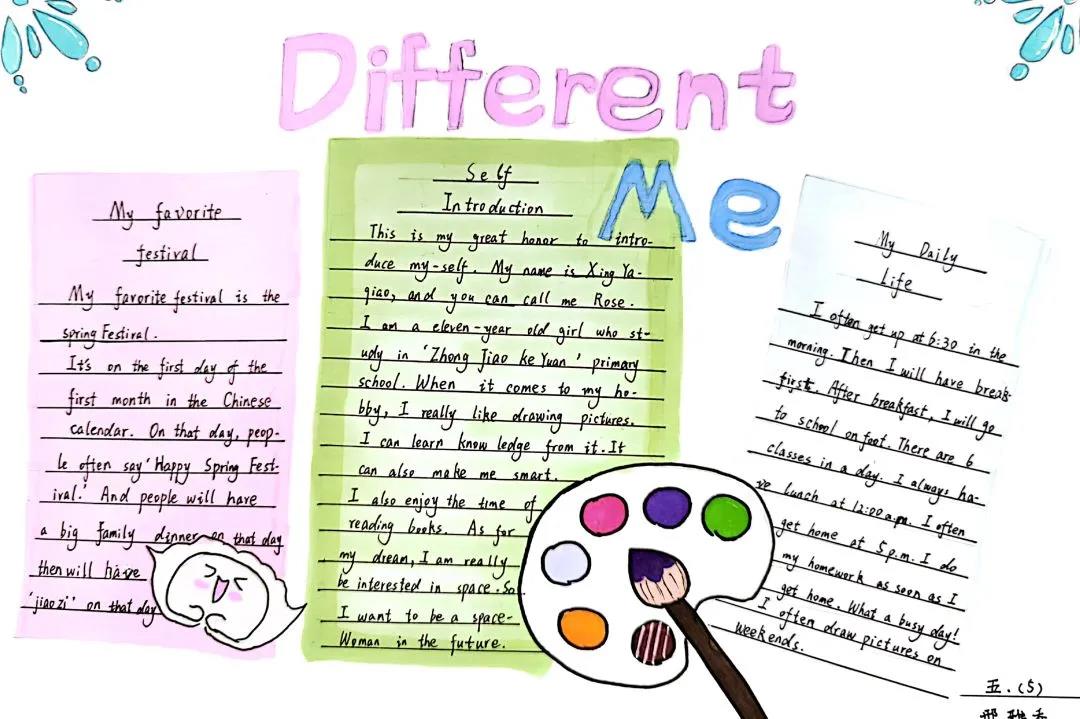 Different
Me
My favorite
festival
My favorite festival is the
spring Festival.
It's on the first day of the
first month in the Chinese
calendar. On that day, peop-
le often say 'Happy Spring Fest-
ival.' And people will have
a big family dinner on that day
then will have
'jiao zi'' on that day
Self
Introduction
This is my great honor to intro-
duce my-self. My name is Xing Ya-
qiao, and you can call me Rose.
I am a eleven-year old girl who st-
udy in 'Zhong Jiao Ke Yuan' primary
school. When it comes to my ho-
bby, I really like drawing pictures.
I can learn know ledge from it. It
can also make me smart.
I also enjoy the time of
reading books. As for
my dream, I am really
be interested in space. So
I want to be a space-
Woman in the future.
My Daily
Life
I often get up at 6:30 in the
morning. Then I will have break-
first. After breakfast, I will go
to school on foot. There are 6
classes in a day. I always ha-
ve lunch at 12:00 a.m. I often
get home at 5 p.m. I do
my homework as soon as I
get home. What a busy day!
I often draw pictures on
weekends.
五.(5)